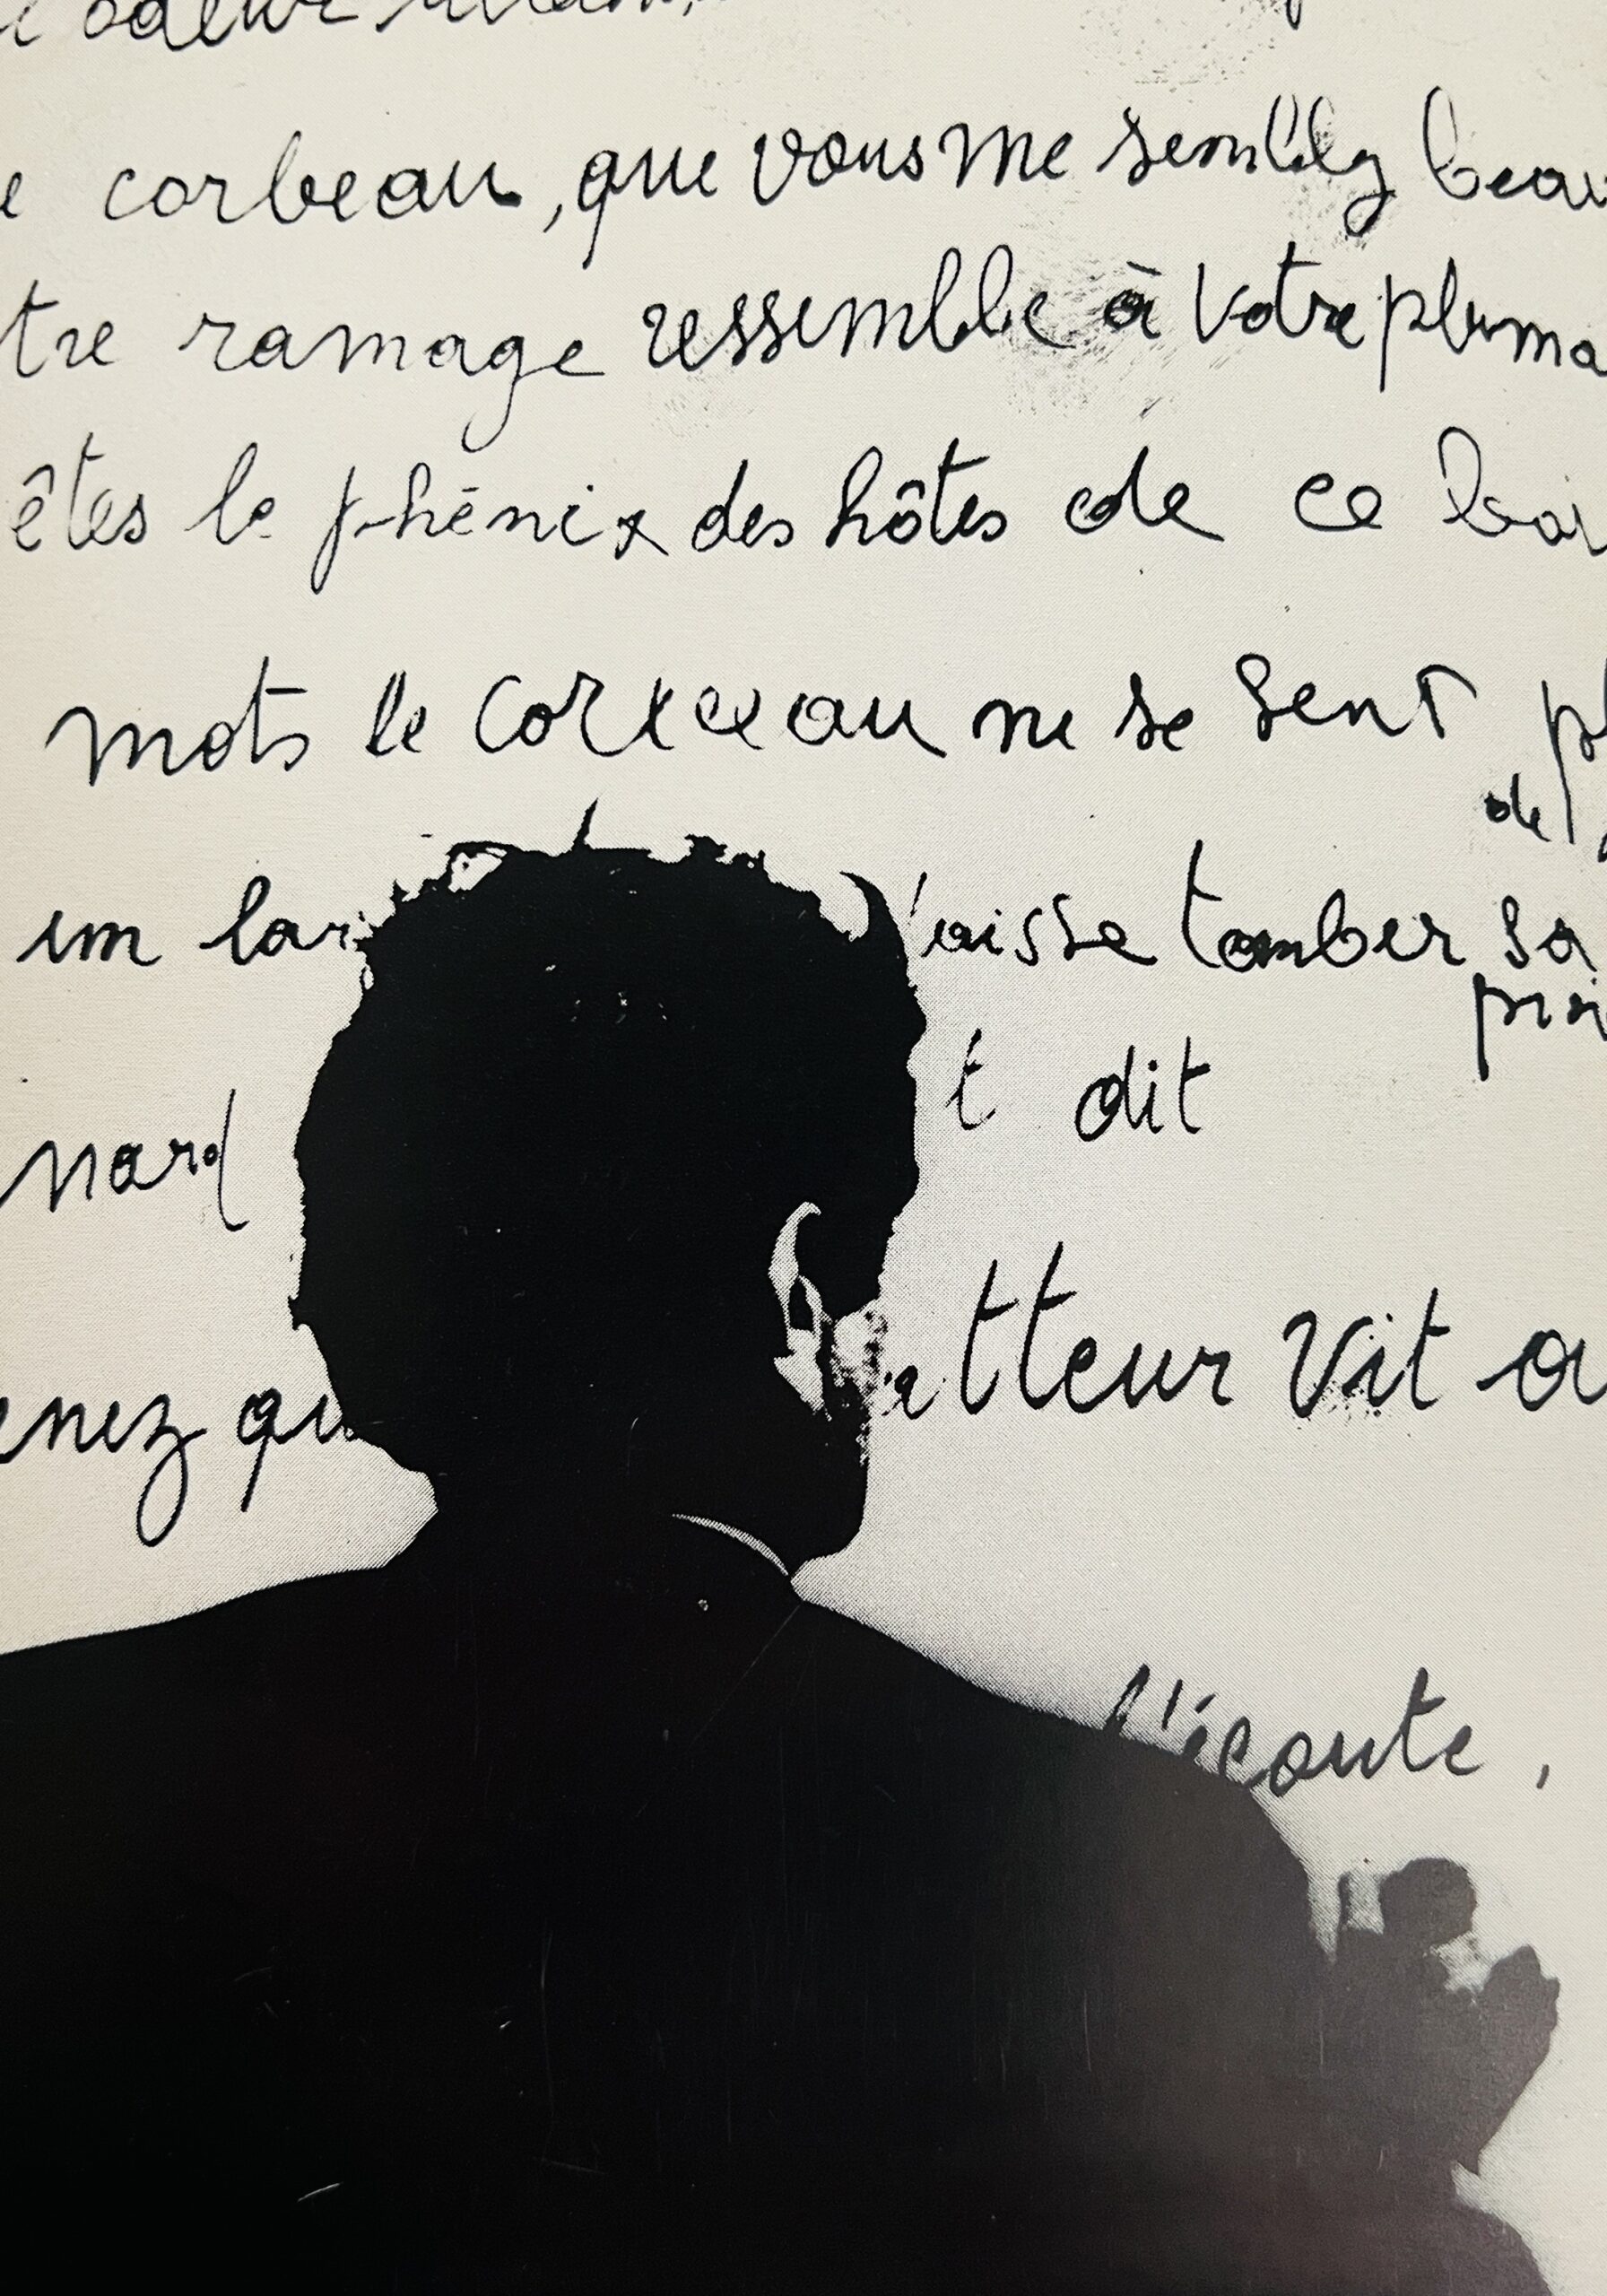 odeur
corbeau, que vous me semblez beau
tre ramage ressemble à Votre pluma
êtes le phénix des hôtes de ce boi
mots le corbeau ne se sent pl
de
un lar laisse tomber sa
proi
nard t dit
enez qu atteur vit a
l'écoute,